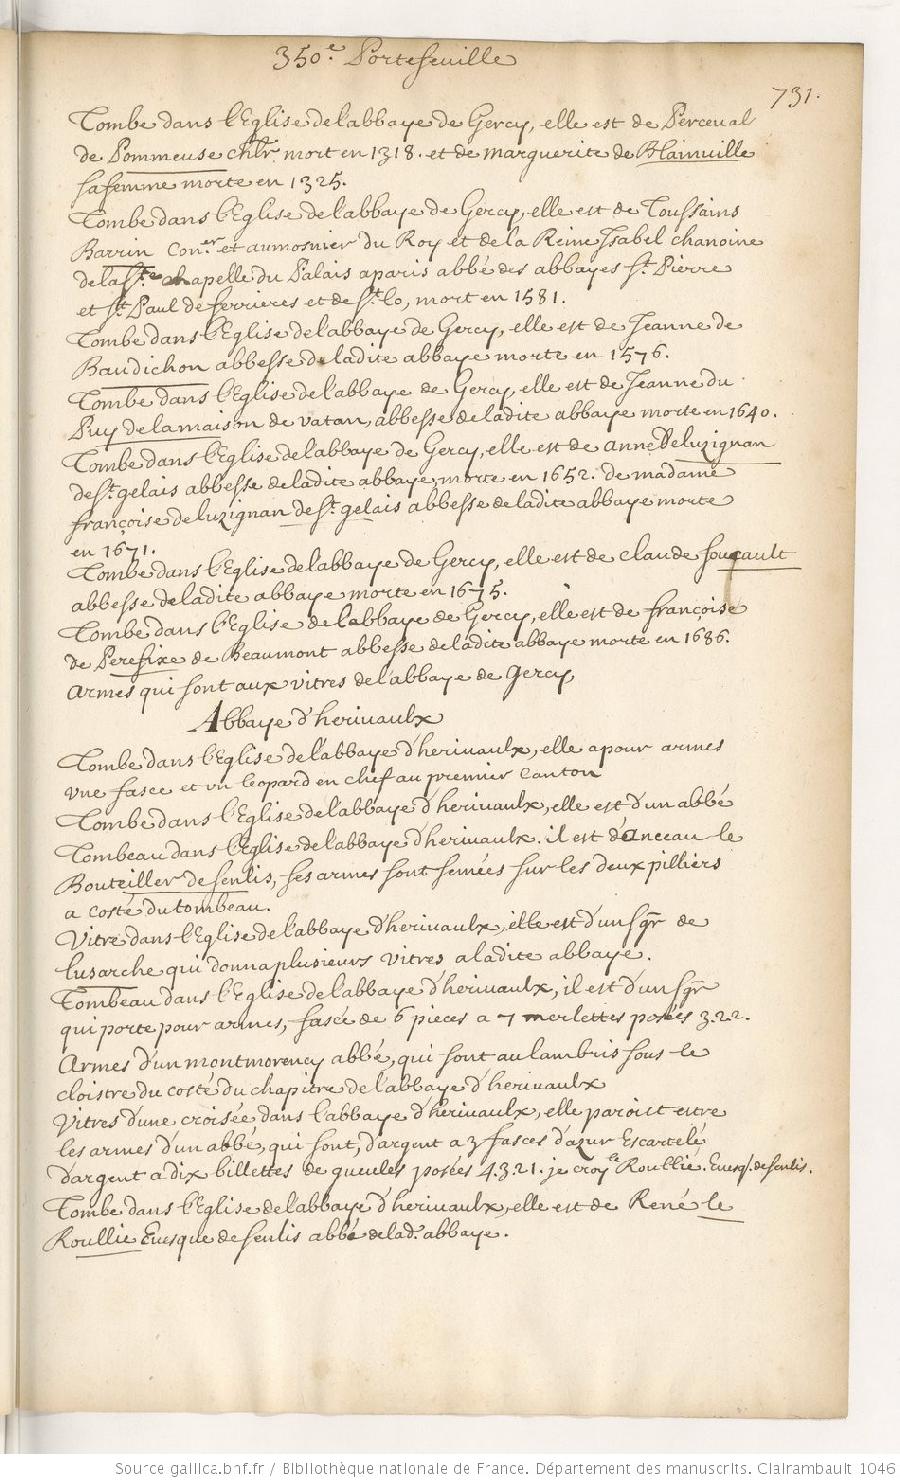 350.e Portefeuille
731.
Tombe dans l'Eglise de l'abbaye de Gercy, elle est de Perceual
de Pommeuse chlr. mort en 1318. et de marguerite de Blainuille
sa femme morte en 1325.
Tombe dans l'Eglise de l'abbaye de Gercy, elle est de Toussains
Barrin Con.er et aumosnier du Roy et de la Reine Isabel chanoine
de la Ste. chapelle du Palais a paris abbé des abbayes St. Pierre
et St. Paul de ferrieres et de St. lo, mort en 1581.
Tombe dans l'Eglise de l'abbaye de Gercy, elle est de Jeanne de
Baudichon abbesse de ladite abbaye morte en 1576.
Tombe dans l'Eglise de l'abbaye de Gercy, elle est de Jeanne du
Puy de la maison de vatan, abbesse de ladite abbaye morte en 1640.
Tombe dans l'Eglise de l'abbaye de Gercy, elle est de anne De luzignan
de St. gelais abbesse de ladite abbaye, morte en 1652. de madame
françoise de luzignan de St. gelais abbesse de ladite abbaye morte
en 1671.
Tombe dans l'Eglise de l'abbaye de Gercy, elle est de claude foucault
abbesse de ladite abbaye morte en 1675.
Tombe dans l'Eglise de l'abbaye de Gercy, elle est de françoise
de Perefixe de Beaumont abbesse de ladite abbaye morte en 1686.
Armes qui sont aux vitres de l'abbaye de Gercy
Abbaye d'heriuaulx
Tombe dans l'Eglise de l'abbaye d'heriuaulx, elle a pour armes
vne fasce et vn leopard en chef au premier canton
Tombe dans l'Eglise de l'abbaye d'heriuaulx, elle est d'un abbé
Tombeau dans l'Eglise de l'abbaye d'heriuaulx. il est d'anceau le
Bouteiller de senlis, ses armes sont semées sur les deux pilliers
a costé du tombeau.
Vitre dans l'Eglise de l'abbaye d'heriuaulx, elle est d'un sgr. de
lusarche qui donna plusieurs vitres a ladite abbaye.
Tombeau dans l'Eglise de l'abbaye d'heriuaulx, il est d'un sgr
qui porte pour armes, fascé de 6 pieces a 7 merlettes posées 3.2.2.
Armes d'un montmorency abbé, qui sont au lambris sous le
cloistre du costé du chapitre de l'abbaye d'heriuaulx
Vitres d'une croisée dans l'abbaye d'heriuaulx, elle paroist estre
les armes d'un abbé, qui sont, d'argent a 3 fasces d'azur Escartelé
d'argent a dix billettes de gueules posées 4.3.2.1. je croy le Roullié. Euesq. de senlis.
Tombe dans l'Eglise de l'abbaye d'heriuaulx, elle est de René le
Roullie Euesque de senlis abbé de lad. abbaye.
Source gallica.bnf.fr / Bibliothèque nationale de France. Département des manuscrits. Clairambault 1046